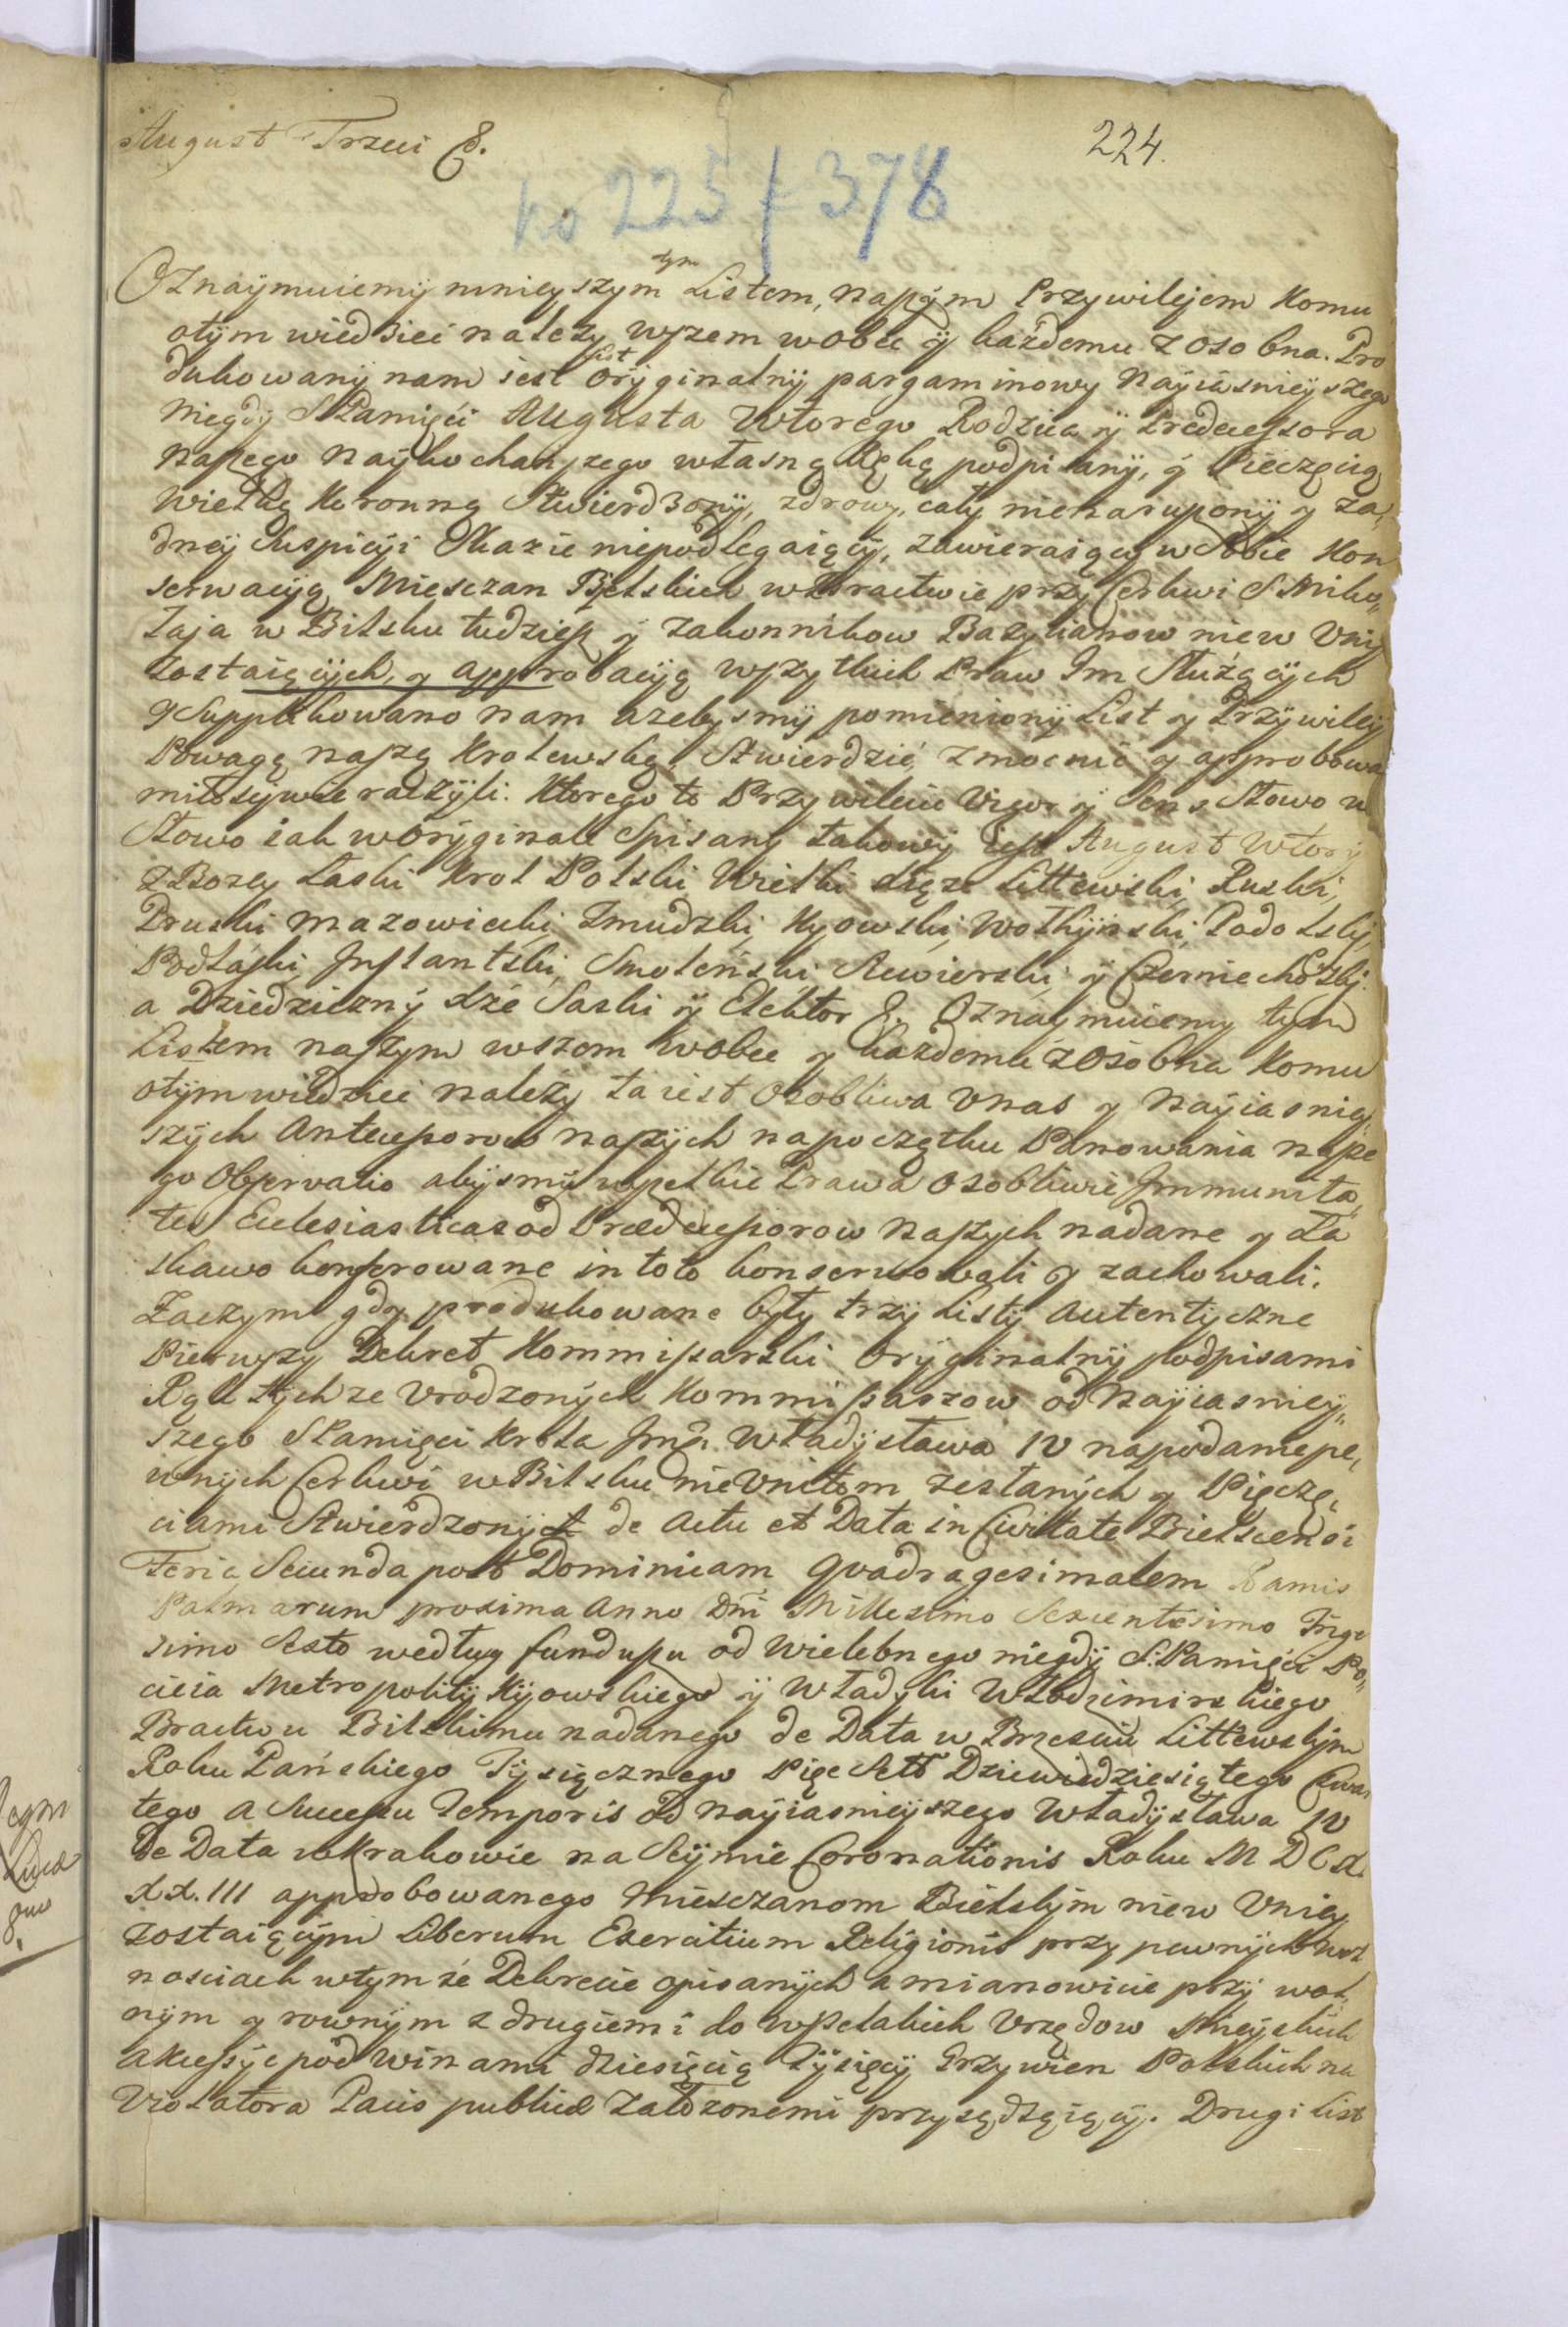 August Trzeci &.
224.
No 225 f 378
tym
Oznaÿmuiemÿ mnieÿszym Listem, naszÿm Przywilejem Komu
otÿm wiedzieć nalezy wszem wobec ÿ każdemu z osobna. Pro
list
dukowanÿ nam iest Orÿginalnÿ pargaminowy Naÿiasnieÿszego
Niegdÿ S Pamięci Augusta Wtorego Rodzica ÿ Predecessora
Naszego Naÿkochanszego własną Ręką podpisanÿ, ÿ Pieczęcią
Wielką Koronną Stwierdzonÿ, zdrowy, cały nienaruszonÿ y Ża„
dneÿ Suspicÿi Skazie niepodlegaiącÿ, zawieraiącÿ w Sobie Kon
serwacÿą Miesczan Bielskich w Bractwie przÿ Cerkwi S Miko„
łaja w Bilsku tudziesz ÿ Zakonnikow Bazylianow niew Vniÿ
zostaiącÿch, y approbacÿą wszytkich Praw Im Służącÿch
y Supplikowano nam azebysmÿ pomienionÿ List y Przÿwileÿ
Powagą naszą Krolewską Stwierdzić zmocnić y approbowa
miłosÿwie raczÿli. Ktorego to Przywileiu Vigor ÿ Sens Słowo w
Słowo iak w Orÿginale Spisanÿ takowÿ iest August Wtorÿ
z Bozey Łaski Krol Polski Wielki Xiąże Littewski, Ruski,
Pruski Mazowiecki, Zmudzki, Kÿowski, Wołhÿnski, Podolskÿ,
Podlaski, Inflantski, Smoleński, Siewierski, ÿ Czerniechowskÿ.
a Dziedzicznÿ Xże Saski ÿ Elektor &. Oznaÿmuiemy tym
Listem naszym wszem wobec y każdemu z Osobna Komu
otÿm wiedziec należÿ ta iest Osobliwa v nas y Naÿiasnieÿ
szÿch Antecessorow naszÿch napoczątku Panowania nasze
go Observatio abÿsmÿ wszelkie Prawa Osobliwie Immunita„
tes Ecclesiasticas od Prædecessorow naszÿch nadane y Ła
skawo konferowane in toto konserwowali y zachowali.
Zaczym gdy produkowane były trzÿ listÿ Autentÿczne
Pierwszy Dekret Kommissarski Orÿginalnÿ podpisami
Rąk tÿchze Vrodzonÿch Kommissarzow od Naÿiasnieÿ„
szego S Pamięci Krola Jmći Władÿsława IV napodanie pe„
wnÿch Cerkwi w Bilsku nieVnitom zesłanÿch y Pieczę„
ciami Stwierdzonÿ de Actu et Data in Civitate Bielscensi
Feria Secunda post Dominicam Qvadragesimalem Ramis
Palmarum proxima Anno Dni Millesimo Sexcentesimo Trige
simo Sexto według funduszu od Wielebnego niegdÿ S: Pamięci Po„
cieia Metropolitÿ Kÿowskiego ÿ Władyki Włodzimirskiego
Bractwu Bilskiemu nadanego de Data w Brzesciu Littewskÿm
Roku Pańskiego Tÿsiącznego Pięc Set Dziewiędziesiątego Czwar
tego a Successu Temporis od Naÿiasnieÿszego Władÿsława IV
de Data w Krakowie na Seÿmie Coronationis Roku M D C X.
X X. III approbowanego Miesczanom Bielskÿm niew Vniÿ
zostaiącÿm Liberum Exercitium Religionis przy pewnÿch wol
nosciach wtym że Dekrecie opisanÿch a mianowicie przÿ wol„
nym y rownÿm z drugiemi do wszelakich Vrzędow Mieÿskich
akcessÿe pod Winami dziesięcią Tÿsięcÿ Grzywien Polskich na
Violatora Pacis publicæ Założonemi przysądzaiącÿ. Drugi List